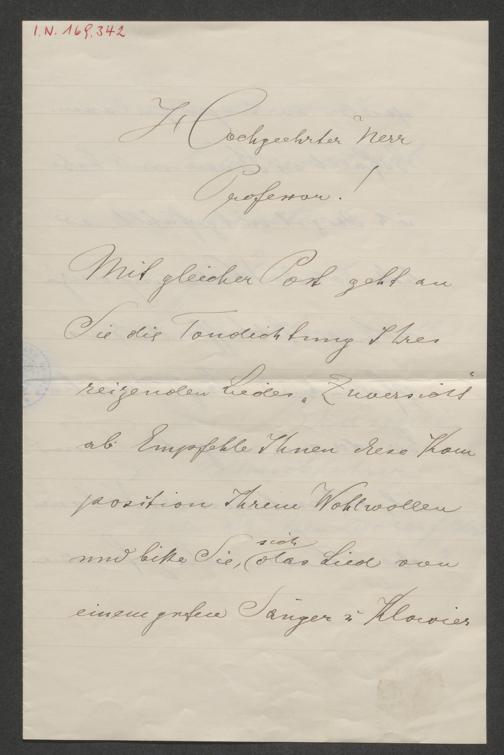 I.N. 169.342
Hochgeehrter Herr
Professor!
Mit gleicher Post geht an
Sie die Tondichtung Ihres
reizenden Liedes „Zuversicht"
ab. Empfehle Ihnen diese Kom
position Ihrem Wohlwollen
und bitte Sie, sich das Lied von
einem guten Sänger u Klavier